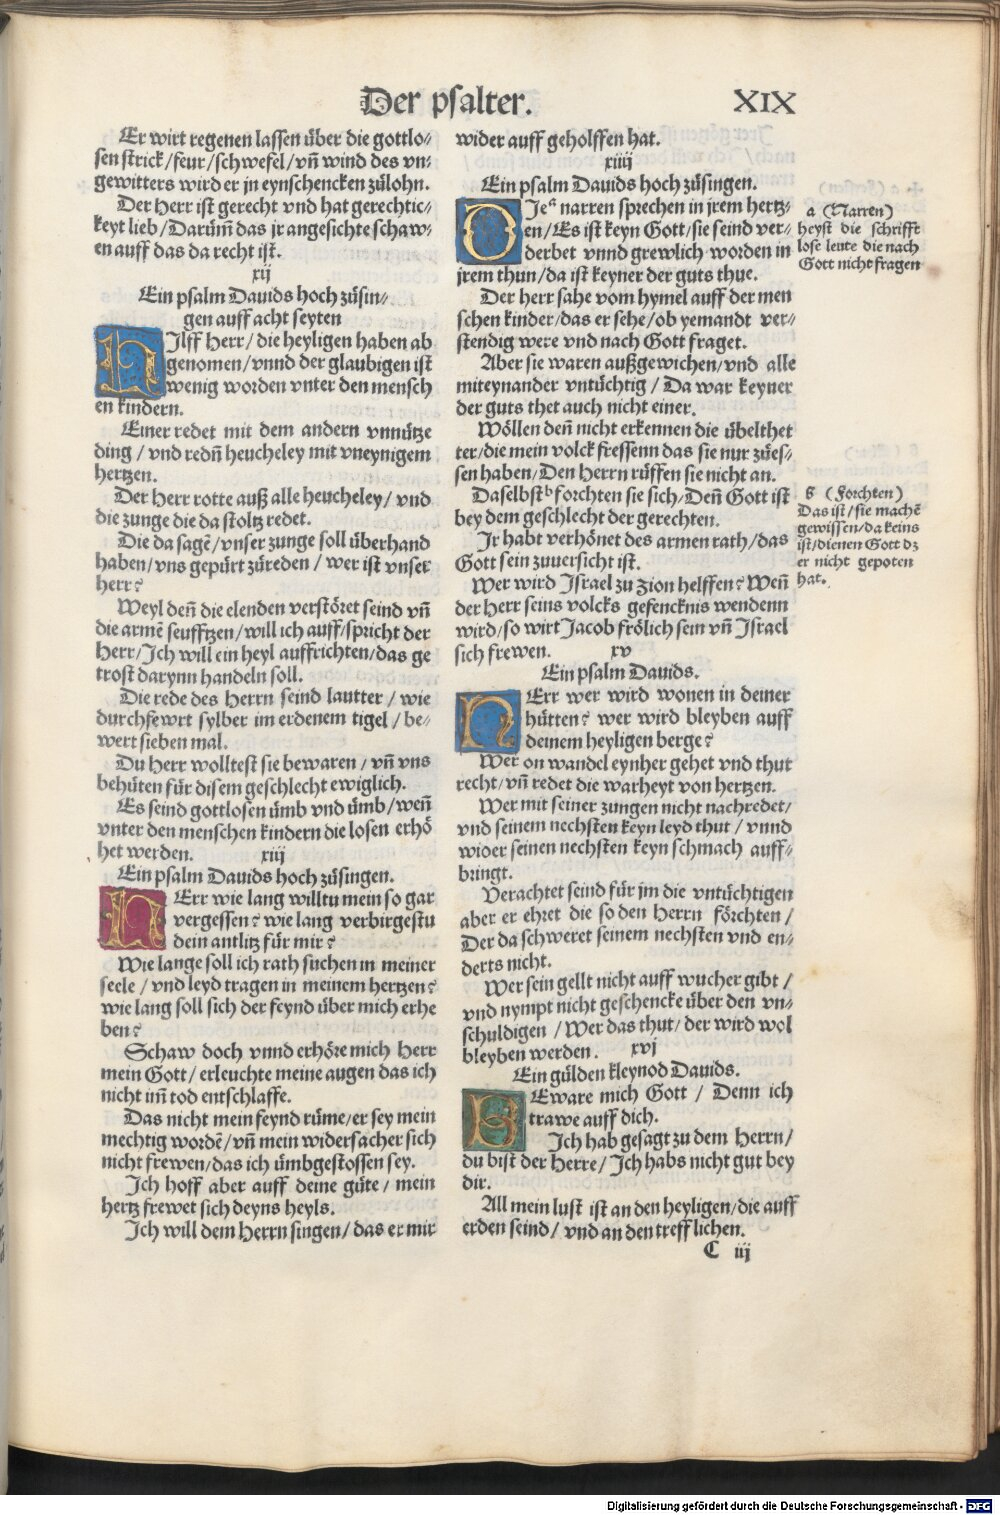 Der psalter.
XIX
Er wirt regenen lassen über die gottlo⸗
sen strick/feur/schwefel/vñ wind des vn⸗
gewitters wird er jn eynschencken zůlohn.
Der Herr ist gerecht vnd hat gerechtic⸗
keyt lieb/Darům̃ das jr angesichte schaw⸗
en auff das da recht ist.
xij
Ein psalm Dauids hoch zůsin⸗
gen auff acht seyten
HIlff Herr/die heyligen haben ab
genomen/vnnd der glaubigen ist
wenig worden vnter den mensch
en kindern.
Einer redet mit dem andern vnnütze
ding/vnd redñ heucheley mit vneynigem
hertzen.
Der Herr rotte auß alle heucheley/vnd
die zunge die da stoltz redet.
Die da sagẽ/vnser zunge soll überhand
haben/vns gepürt züreden/wer ist vnser
herr?
Weyl deñ die elenden verstöret seind vñ
die armẽ seufftzen/will ich auff/spricht der
Herr/Ich will ein heyl auffrichten/das ge
trost darynn handeln soll.
Die rede des Herrn seind lautter/wie
durchfewrt sylber im erdenem tigel/be⸗
wert sieben mal.
Du Herr wolltest sie bewaren/vñ vns
behüten für disem geschlecht ewiglich.
Es seind gottlosen ümb vnd ümb/weñ
vnter den menschen kindern die losen erhö
het werden.
xiij
Ein psalm Dauids hoch züsingen.
HErr wie lang willtu mein so gar
vergessen? wie lang verbirgestu
dein antlitz für mir?
Wie lange soll ich rath suchen in meiner
seele/vnd leyd tragen in meinem hertzen?
wie lang soll sich der feynd über mich erhe
ben?
Schaw doch vnnd erhöre mich Herr
mein Gott/erleuchte meine augen das ich
nicht im̃ tod entschlaffe.
Das nicht mein feynd rüme/er sey mein
mechtig wordẽ/vñ mein widersacher sich
nicht frewen/das ich ümbgestossen sey.
Ich hoff aber auff deine güte/mein
hertz frewet sich deyns heyls.
Ich will dem Herrn singen/das er mir
wider auff geholffen hat.
xiiij
Ein psalm Dauids hoch züsingen.
DIeᵃ narren sprechen in jrem hertz⸗
en/Es ist keyn Gott/sie seind ver⸗
derbet vnnd grewlich worden in
jrem thun/da ist keyner der guts thue.
Der herr sahe vom hymel auff der men
schen kinder/das er sehe/ob yemandt ver⸗
stendig were vnd nach Gott fraget.
Aber sie waren außgewichen/vnd alle
miteynander vntüchtig/Da war keyner
der guts thet auch nicht einer.
Wöllen deñ nicht erkennen die übelthet
ter/die mein volck fressenn das sie nur zües⸗
sen haben/Den Herrn rüffen sie nicht an.
Daselbstᵇ forchten sie sich/Deñ Gott ist
bey dem geschlecht der gerechten.
Ir habt verhönet des armen rath/das
Gott sein zuuersicht ist.
Wer wird Israel zu Zion helffen? Weñ
der Herr seins volcks gefencknis wendenn
wird/so wirt Jacob frölich sein vñ Israel
sich frewen.
xv
Ein psalm Dauids.
HErr wer wird wonen in deiner
hütten? wer wird bleyben auff
deinem heyligen berge?
Wer on wandel eynher gehet vnd thut
recht/vñ redet die warheyt von hertzen.
Wer mit seiner zungen nicht nachredet/
vnd seinem nechsten keyn leyd thut/vnnd
wider seinen nechsten keyn schmach auff⸗
bringt.
Verachtet seind für jm die vntüchtigen
aber er ehret die so den Herrn förchten/
Der da schweret seinem nechsten vnd en⸗
derts nicht.
Wer sein gellt nicht auff wucher gibt/
vnd nympt nicht geschencke über den vn⸗
schuldigen/Wer das thut/der wird wol
bleyben werden.
xvj
Ein gülden kleynod Dauids.
BEware mich Gott/Denn ich
trawe auff dich.
Ich hab gesagt zu dem Herrn/
du bist der Herre/Ich habs nicht gut bey
dir.
All mein lust ist an den heyligen/die auff
erden seind/vnd an den trefflichen.
C iij
a (Narren)
heyst die schrifft
lose leute die nach
Gott nicht fragen
b (Forchten)
Das ist/sie machẽ
gewissen/da keins
ist/dienen Gott dz
er nicht gepoten
hat.
Digitalisierung gefördert durch die Deutsche Forschungsgemeinschaft - DFG